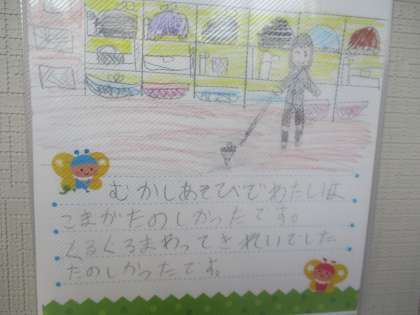 むかしあそびでわたしは
こまがたのしかったです。
くるくるまわってきれいでした
たのしかったです。